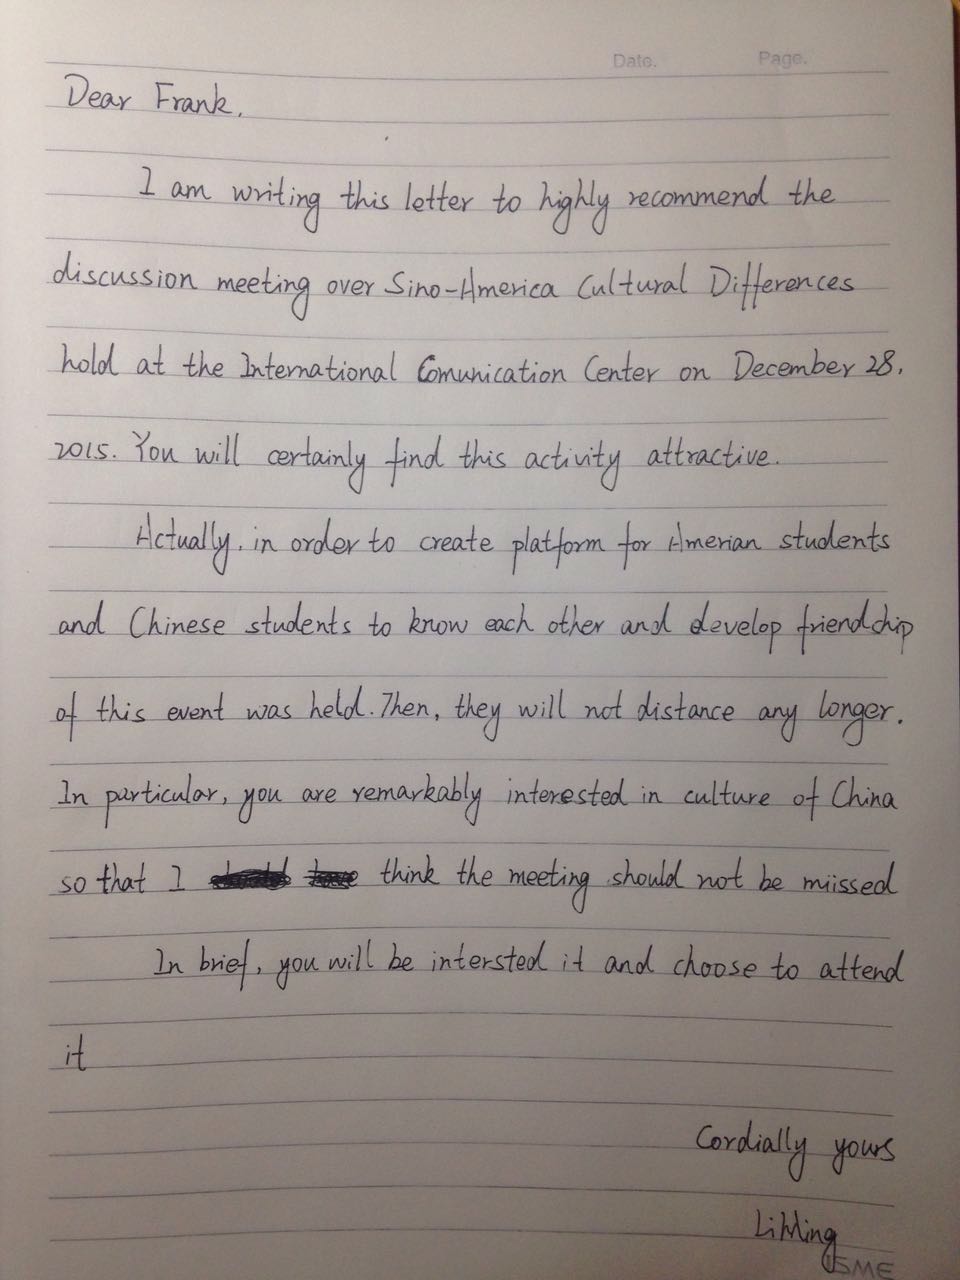 Date. Page.
Dear Frank,
I am writing this letter to highly recommend the
discussion meeting over Sino-America Cultural Differences
hold at the International Comunication Center on December 28,
2015. You will certainly find this activity attractive.
Actually, in order to create platform for Amerian students
and Chinese students to know each other and develop friendchip
of this event was held. Then, they will not distance any longer.
In particular, you are remarkably interested in culture of China
so that I think the meeting should not be miissed
In brief, you will be intersted it and choose to attend
it
Cordially yours
LiMing